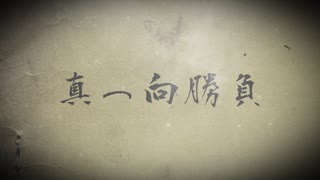 真一向勝負